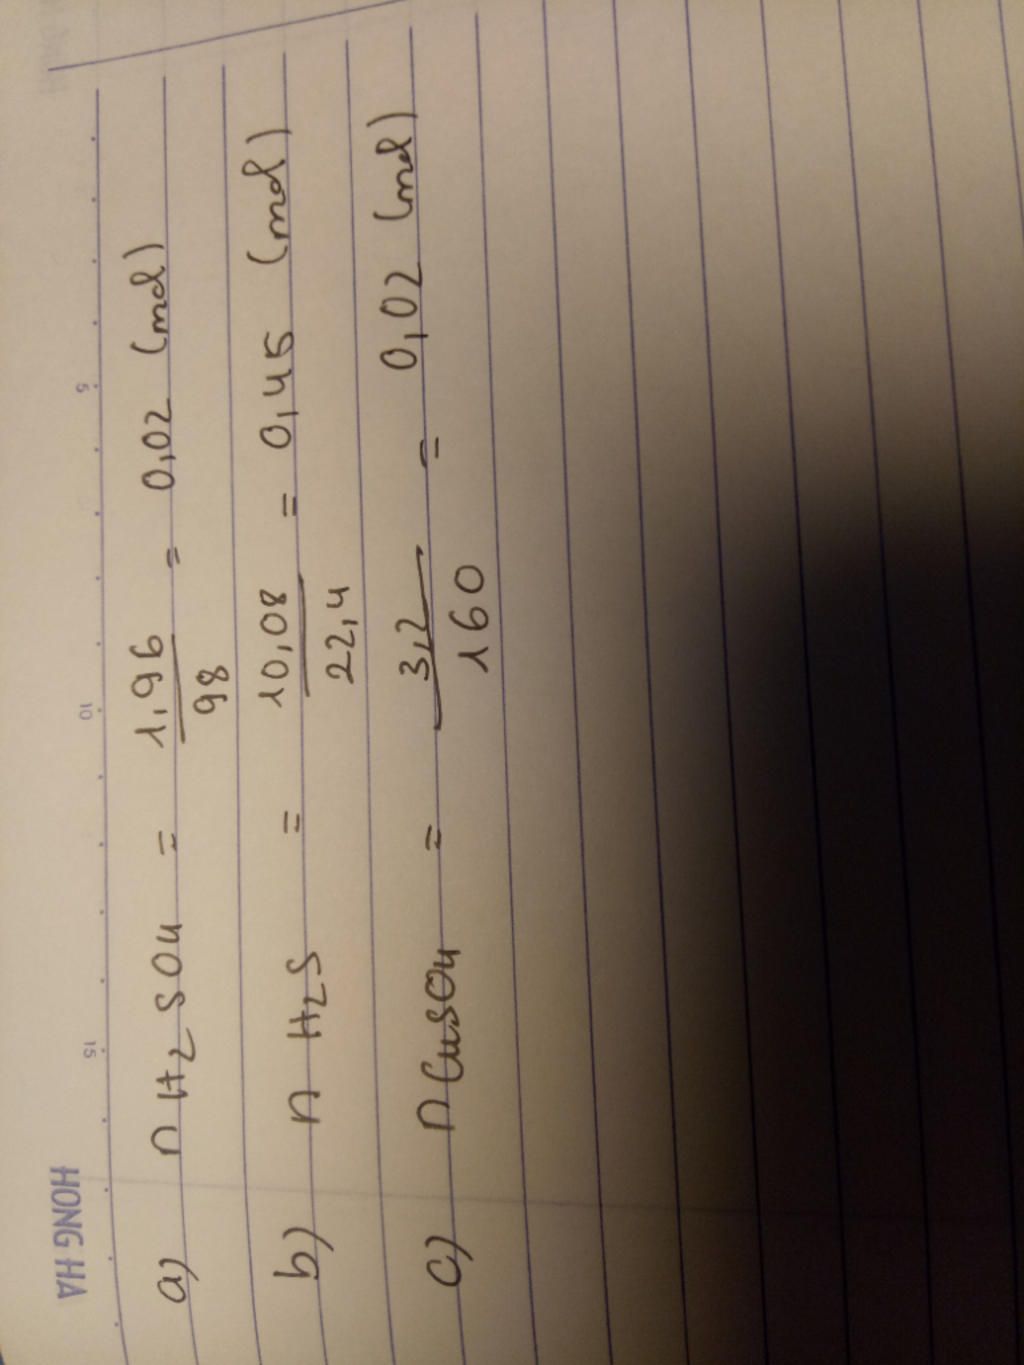 HONG HA
15 10 5
a) n H2SO4 = 1,96 / 98 = 0,02 (mol)
b) n H2S = 10,08 / 22,4 = 0,45 (mol)
c) n CuSO4 = 3,2 / 160 = 0,02 (mol)